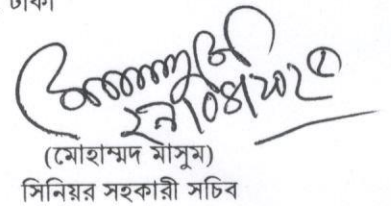 ঢাকা
(মোহাম্মদ মাসুম)
সিনিয়র সহকারী সচিব